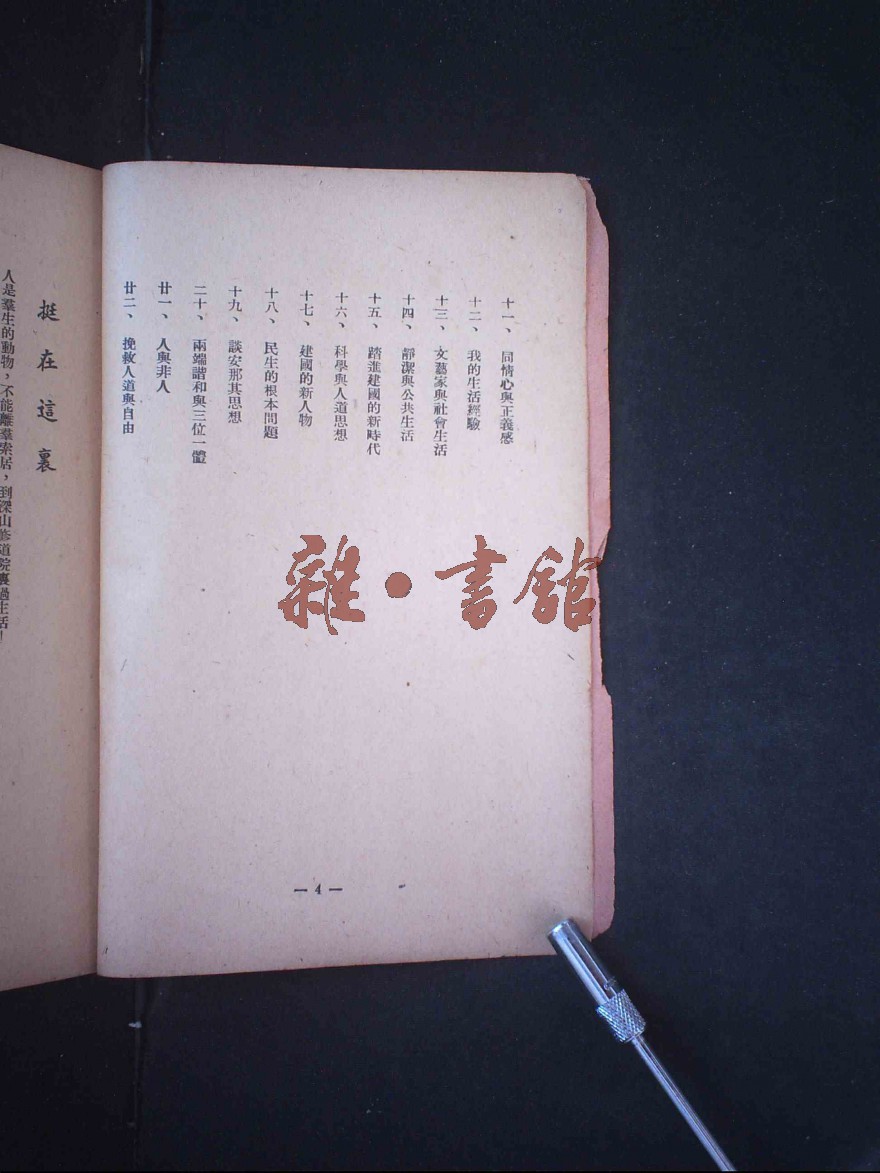 十一、同情心與正義感
十二、我的生活經驗
十三、文藝家與社會生活
十四、靜潔與公共生活
十五、踏進建國的新時代
十六、科學與人道思想
十七、建國的新人物
十八、民生的根本問題
十九、談安那其思想
二十、兩端諧和與三位一體
廿一、人與非人
廿二、挽救人道與自由
—4—
挺在這裏
人是羣生的動物，不能離羣索居，到深山修道院裏過生活！
雜•書館